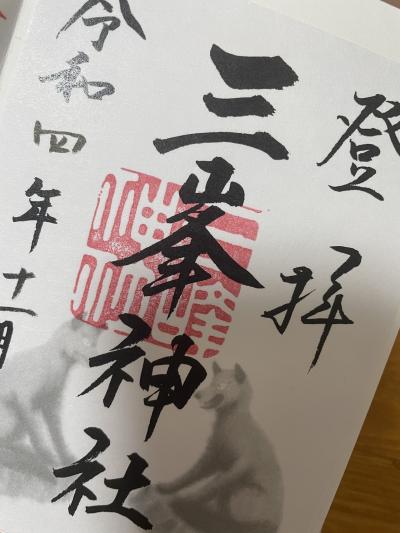 登拝
三峯神社
令和四年十一月